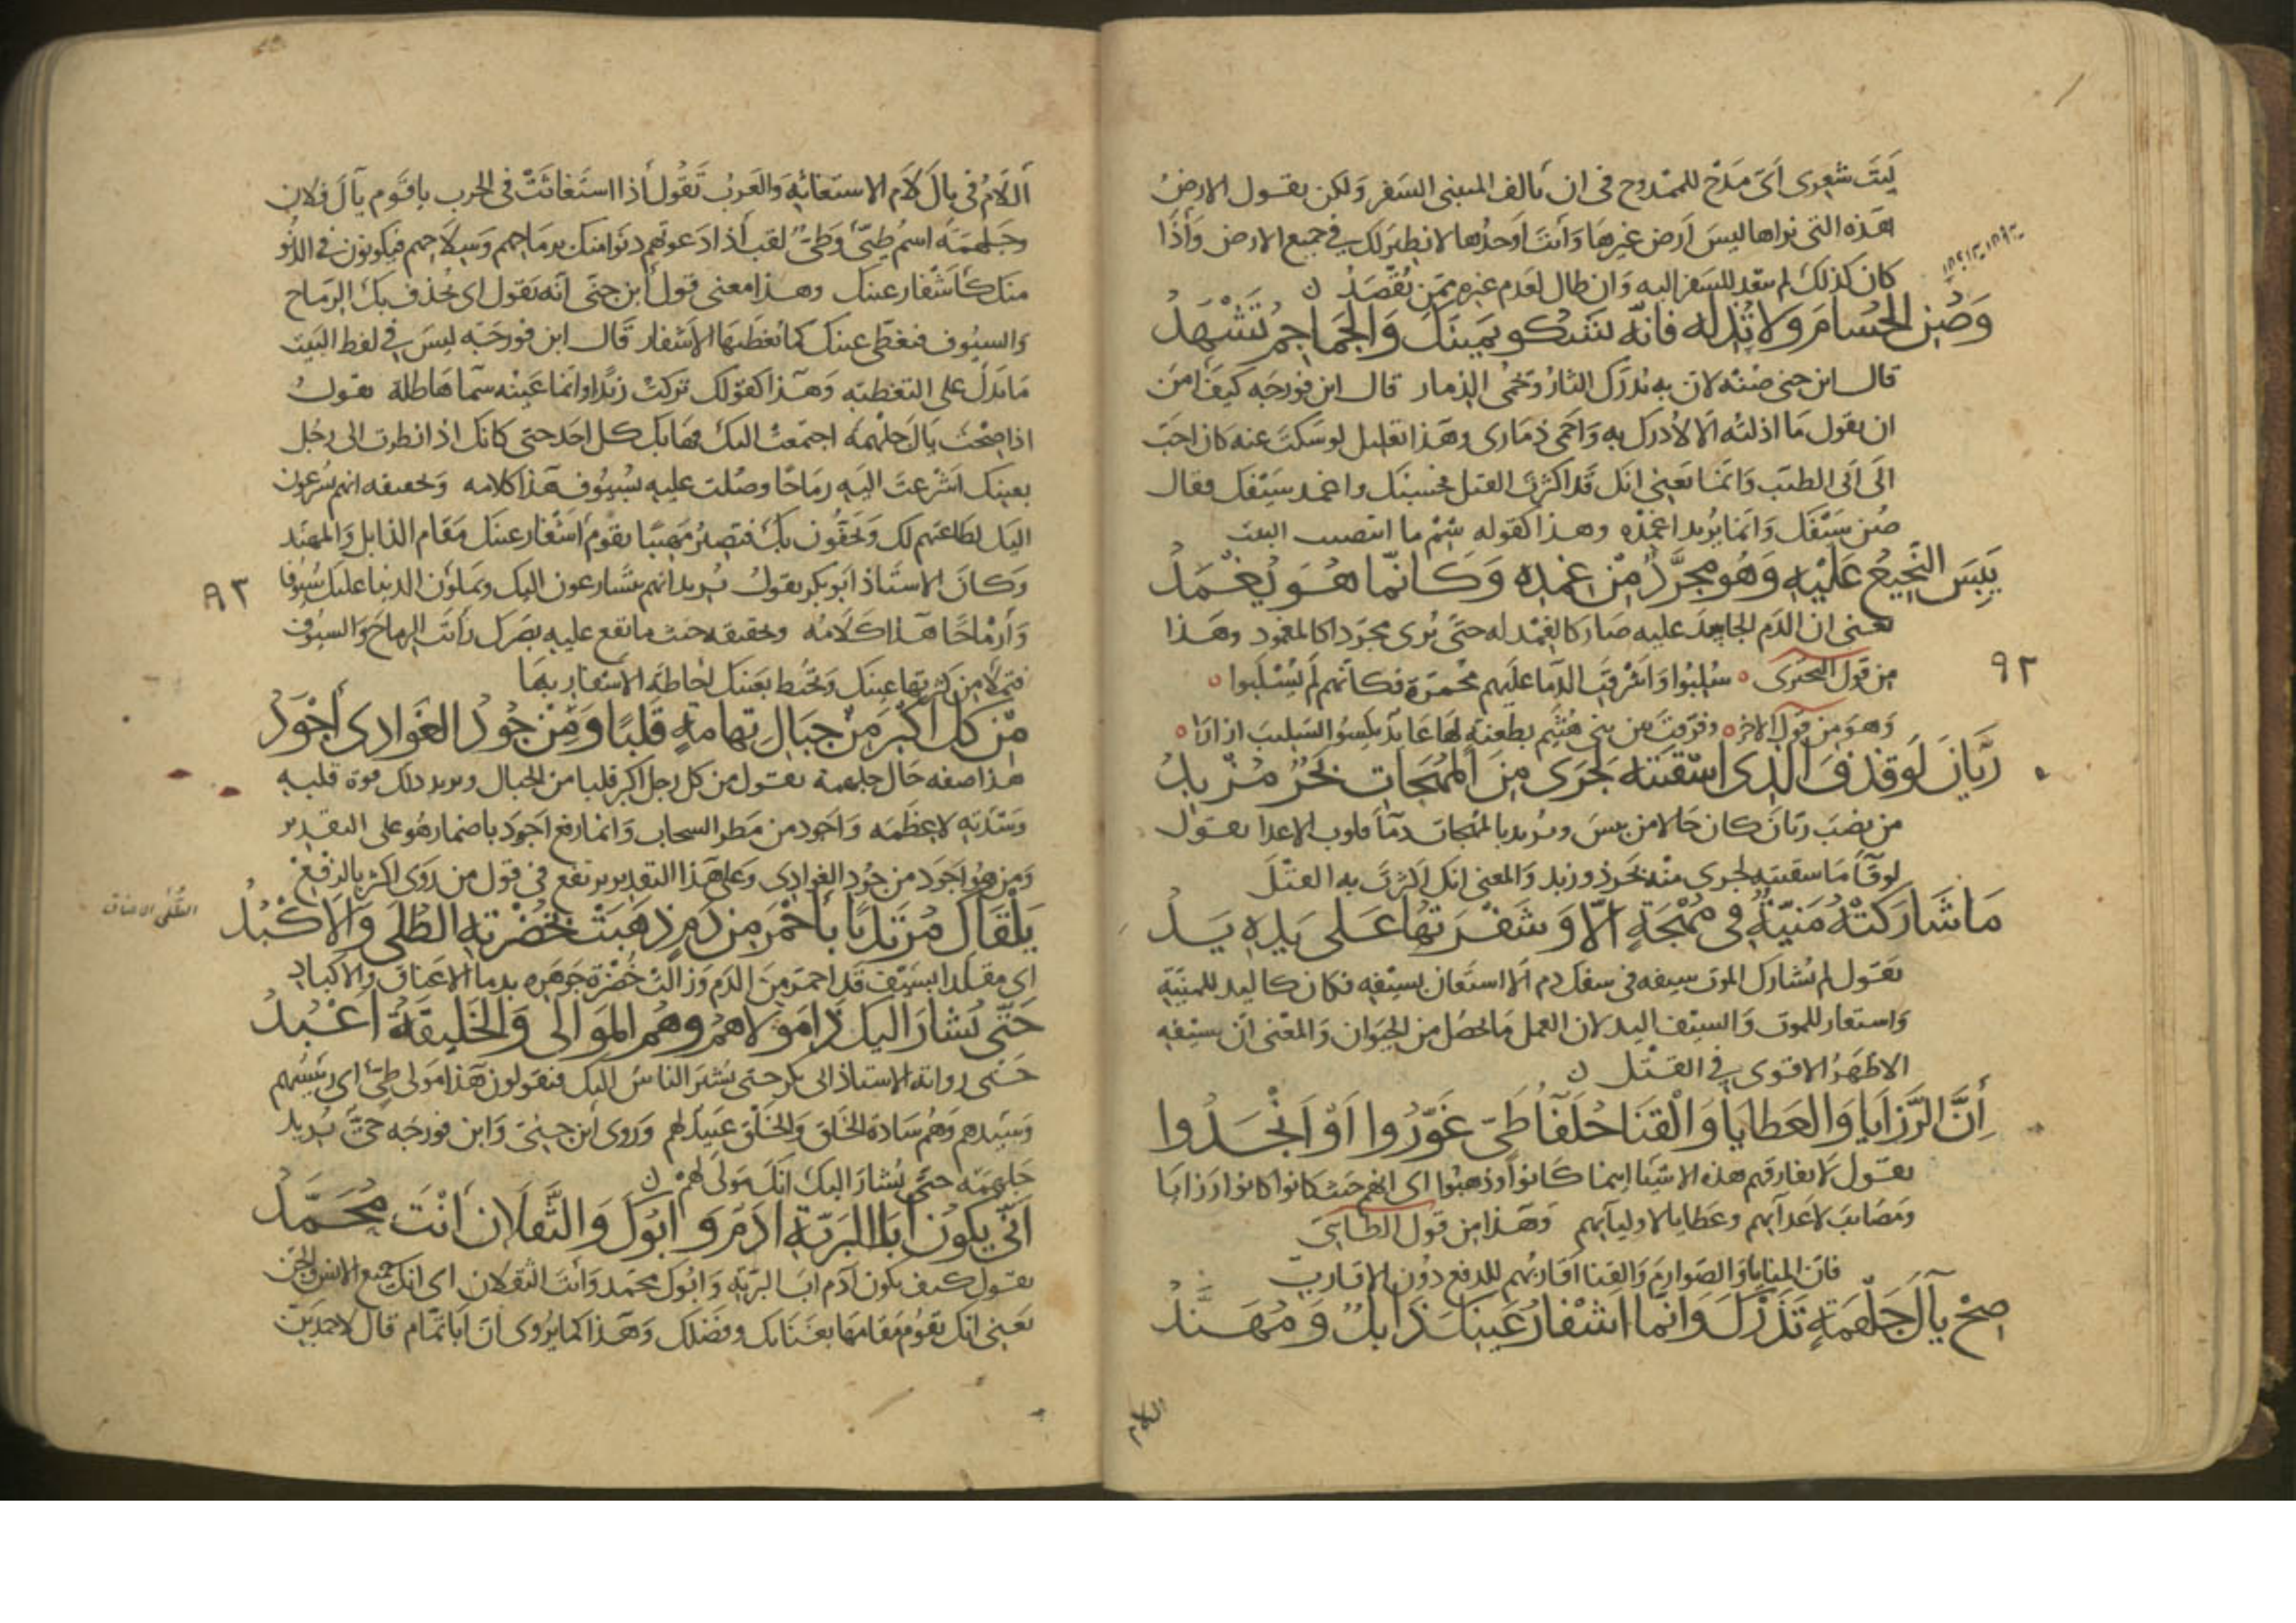 ليت شعرى اىّ مدح للممدوح فى ان يالف المتنبى السفر ولكن يقول الارض
هذه التى نراها ليس ارض غيرها وانت اوحدها لا نظير لك فى جميع الارض واذا
كان كذلك لم يبعد للسفر اليه وان طال لعدم غيره ممن يقصد
وَصُنِ الحُسامَ ولا تُذِله فانّه يشكو يمينكَ والجماجمُ تَشْهَدُ
قال ابن جنى صُنه لان به يُدرك الثار وتحمى الذمار قال ابن فورجه كيف امن
ان يقول ما اذلته الا لادرك به واحمى ذمارى وهذا تعليل لو سكت عنه كان احب
الى ابى الطيب وانما يعنى انك قد اكثرت القتل فحسبك واغمد سيفك فقال
صُن سيفك وانما يريد اغمده وهذا كقوله شِمْ ما انتضيت البيت
يَبِسَ النّجيعُ عَلَيْهِ وَهُو مجرَّدٌ مِنْ غِمدِه وَكانّما هُوَ يُغْمَدُ
يعنى ان الدم الجامد عليه صار كالغمد له حتى يُرى مجردا كالمغمود وهذا
من قول البحترى سُلِبُوا واشرقت الدما عليهم محمرّة فكانهم لم يُسْلَبوا
٩٢
وهو من قول الاخر وفرّقت بين بنى هُثَيم بطعنة لها عاند يكسو السليب ازارا
ريّانَ لَو قذفَ الّذى اسْقَيتَه لَجَرى مِنَ المُهَجاتِ بَحْرٌ مُزْبِدُ
من نصب ريّان كان حالا من يبس ويريد بالمهجات دمآ قلوب الاعدا يقول
لو قآ ما سقيته لجرى منه بحر ذو زبد والمعنى انك اكثرت به القتل
مَا شَارَكَتْهُ مَنيّةٌ فى مُهْجَةٍ الّا وَشَفْرَتُها عَلى يَدِه يَدُ
يقول لم تشارك الموت سيفه فى سفك دم الا استعان بسيفه فكان كاليد للمنيّة
واستعار للموت والسيف اليد لان العمل ما يحصل من الحيوان والمعنى ان سيفه
الاظهر الاقوى فى القتل
أِنَّ الرَّزَايَا وَالعَطايَا وَالْقَنَا حُلَفَآ طَىّ غَوَّرُوا اَوْ اَنْجَدُوا
يقول لا يفارقهم هذه الاشيا اينما كانوا وذهبوا اى انهم حيث كانوا كانوا رزايا
ومصائب لاعدآيهم وعطايا لاوليآيهم وهذا من قول الطائى
فان المنايا والصوارم والقنا اقاربهم للدفع دون الاقارب
صِحْ يآلَ جَلْهَمَةٍ تَذَرْكَ وَانّما اَشْفارُ عَينكَ ذابلٌ وَمُهَنَّدُ
اللام
أللامُ فى يال لام الاستغاثه والعرب تقول أذا استغاثت فى الحرب يا قوم يآل فلان
وجلهمة اسم طىّ وطىّ لقب أذا دعوتهم دنوا منك برماحهم وسلاحهم فيكونون فى الدنو
منك كأشفار عينك وهذا معنى قول ابن جنى انه يقول اى تحذف بك الرماح
والسيوف فتغطى عينك كما تغطيها الاشفار قال ابن فورجه ليس فى لفظ البيت
ما يدل على التغطيه وهذا كقولك تركت زيدا وانما عينه سما هاطلة يقول
اذا صِحْت يال جلهمة اجتمعت اليك فهابك كل احد حتى كانك اذا نظرت الى رجل
بعينك اشرعت اليه رماحًا وصلت عليه بسيوف هذا كلامه وتحقيقه انهم يسرعون
اليك لطاعتهم لك ويحفون بك فتصير مهيبًا يقوم أشفار عينك مقام الذابل والمهند
وكان الاستاذ ابو بكر يقول يريد انهم يتسارعون اليك ويملون الدنيا عليك سيوفا
٩٣
وأرماحًا هذا كلامه وحقيقه حيث ما تقع عليه بصرك رأيت الرماح والسيوف
فتملأ من كثرتها عينك وتحيط بعينك احاطة الاشفار بها
مِن كلّ أكْبَرَ مِنْ جبالِ تِهامةٍ قَلبًا وَمِنْ جُودِ الغَوادى أجْوَدُ
هذا صفه حال جلهمة يقول من كل رجل اكبر قلبا من الجبال ويريد بذلك قوة قلبه
وشدّته لا عظمه واجود من مطر السحاب وانما رفع اجود باضمار هو على التقدير
ومن هو اجود من جود الغوادى وعلى هذا التقدير يرتفع فى قول من روى اكثر بالرفع
يَلْقَاكَ مُرْتَديًا بأَحْمَرَ مِن دَمٍ ذهَبَتْ بخُضْرَتِهِ الطُلَى وَالأكْبُدُ
الطُّلى الاعناق
اى مقلدا بسيف قد احمر من الدم وزالت خُضرة جوهره بدما الاعناق والاكباد
حَتّى يُشارَ اليكَ ذا مَوْلاهُمُ وهُمُ المَوَالى وَالخَليقَةُ أعْبُدُ
حتى رواية الاستاذ ابى بكر حتى يشير الناس اليك فيقولون هذا مولى طىّ اى رئيسهم
وسيدهم وهم سادة الخلق والخلق عبيد لهم وروى ابن جنى وابن فورجه حىّ يريد
جلهمة حىّ يشار اليك انك مولى لهم
أَنّى يكونُ أَبا البَريّةِ ادَمٌ وَابُوكَ وَالثَّقَلَانِ أَنْتَ مُحَمَّدُ
يقول كيف يكون آدم ابا البريّة وابوك محمد وانت الثقلان اى انك جميع الانس والجن
يعنى انك تقوم مقامها بغنائك وفضلك وهذا كما يروى ان ابا تمام قال لاحمد بن